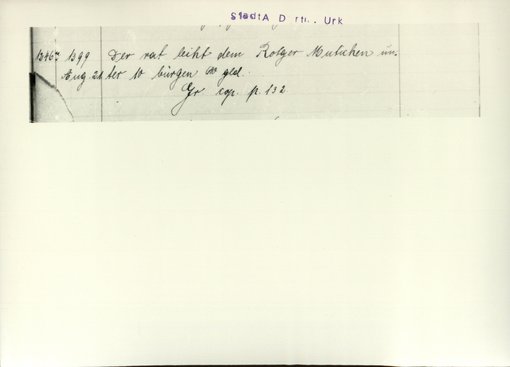 StadtA D rtm. Urk
1346a 1399 Der rat leiht dem Rotger Mulichen un-
Aug. 21 ter 10 bürgen 100 gld.
Gr cop. p. 132